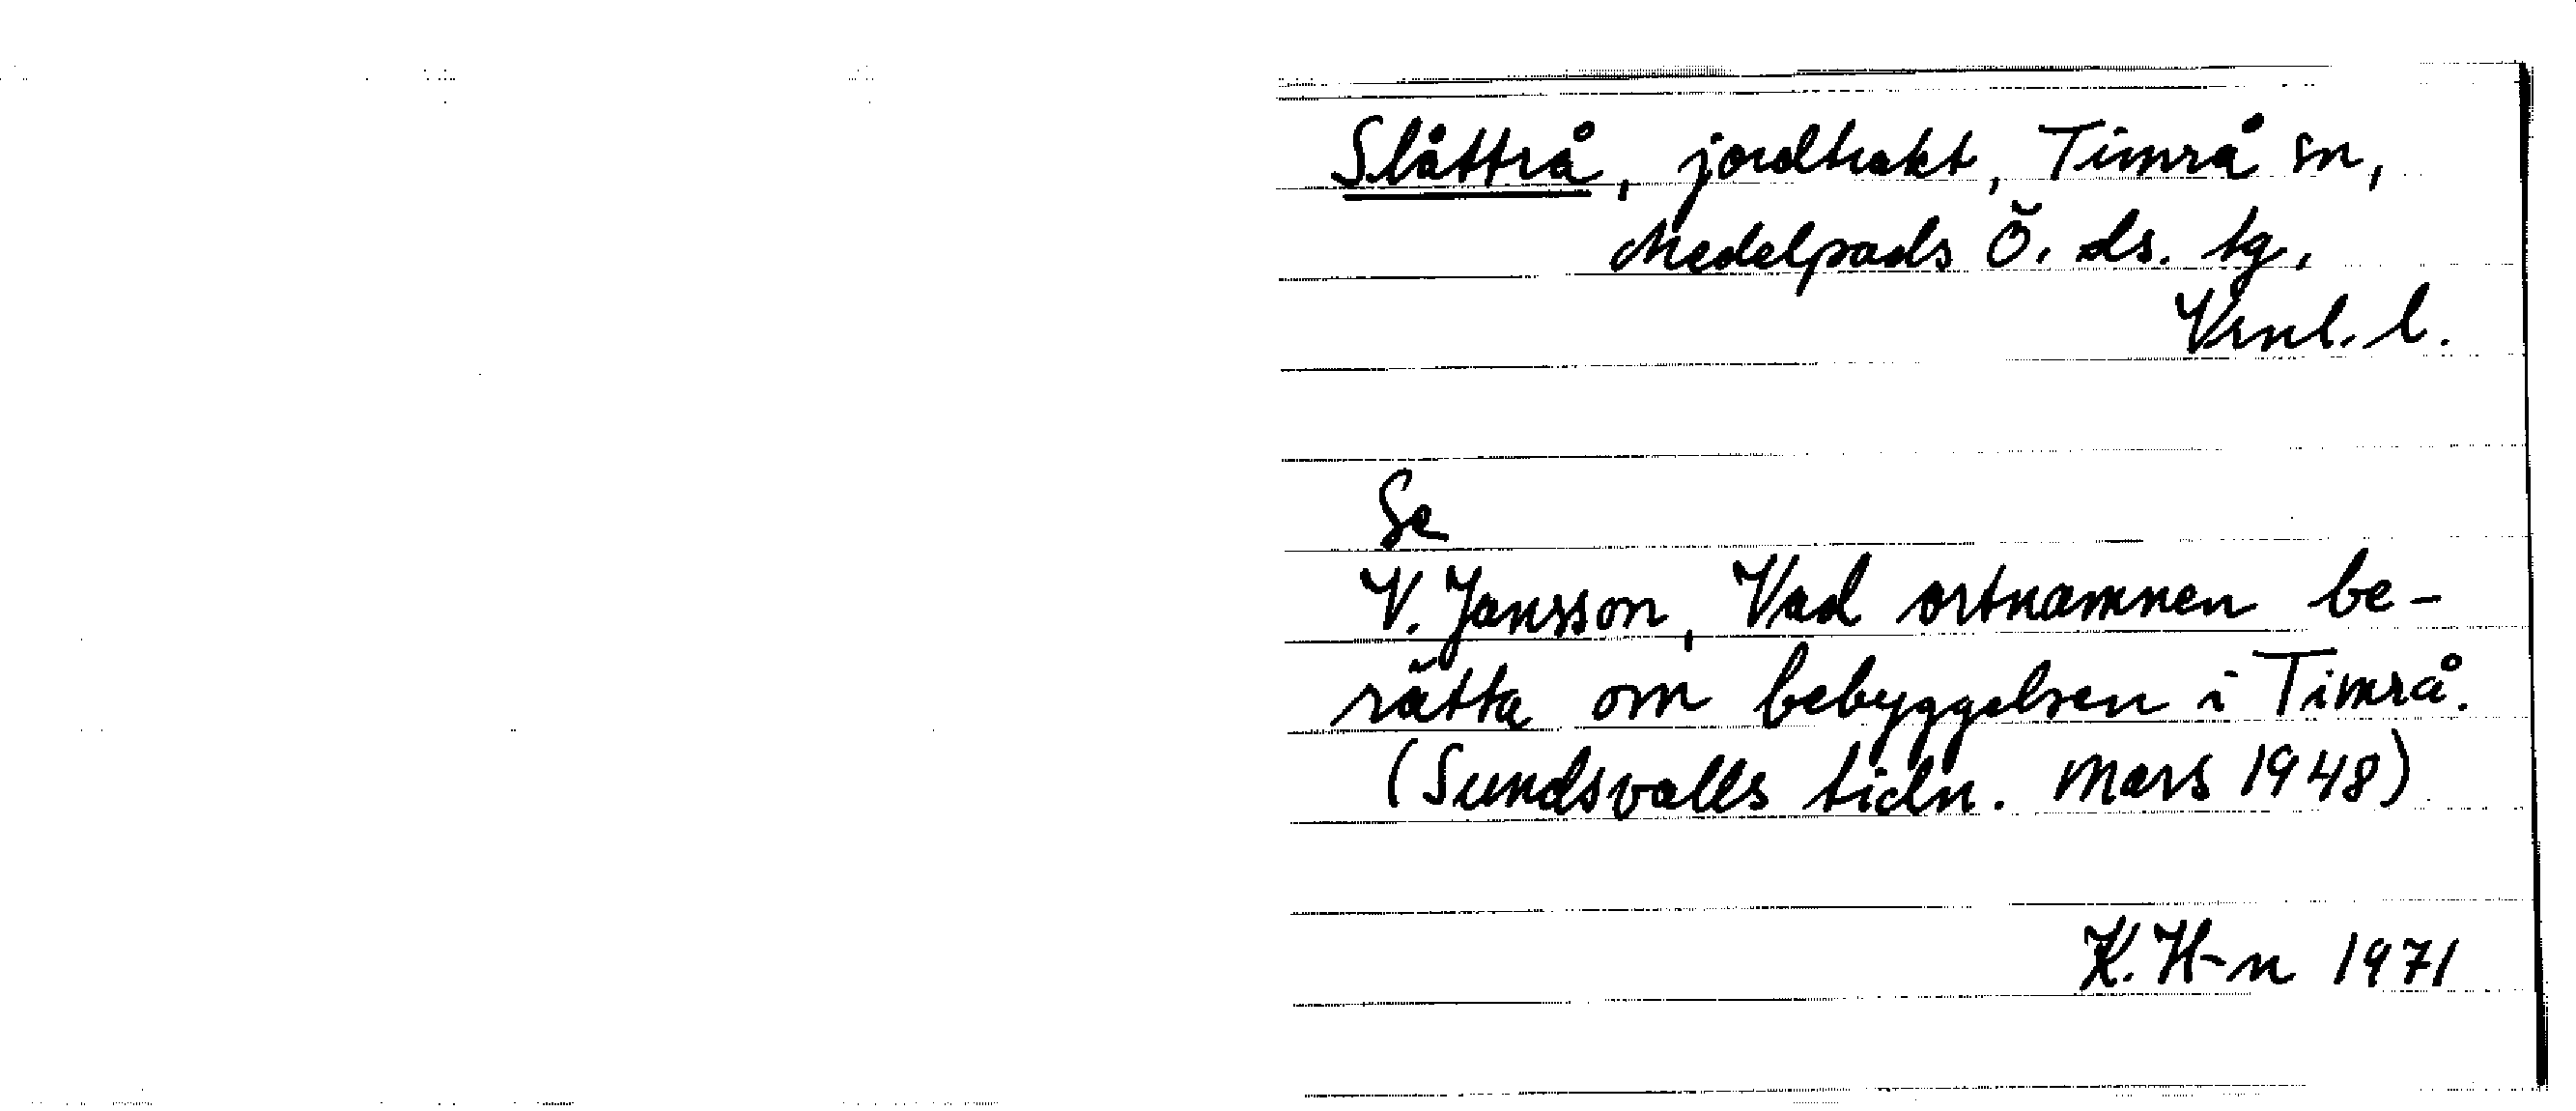 Slåttrå, jordtrakt, Timrå sn,
Medelpads Ö. ds. tg,
Vrnl. l.
Se
V. Jansson, Vad ortnamnen be-
rätta om bebyggelsen i Timrå.
(Sundsvalls tidn. Mars 1948)
K. H-n 1971